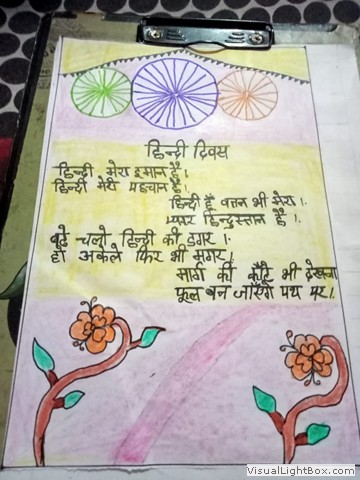 हिन्दी दिवस
हिन्दी मेरा इमान है।
हिन्दी मेरी पहचान है।
हिन्दी हूँ वतन भी मेरा।
प्यारा हिन्दुस्तान है।
बढ़े चलो हिन्दी की डगर।
हो अकेले फिर भी मगर।
मार्ग की काँटे भी देखना
फूल बन जाएँगे पथ पर।
VisualLightBox.com